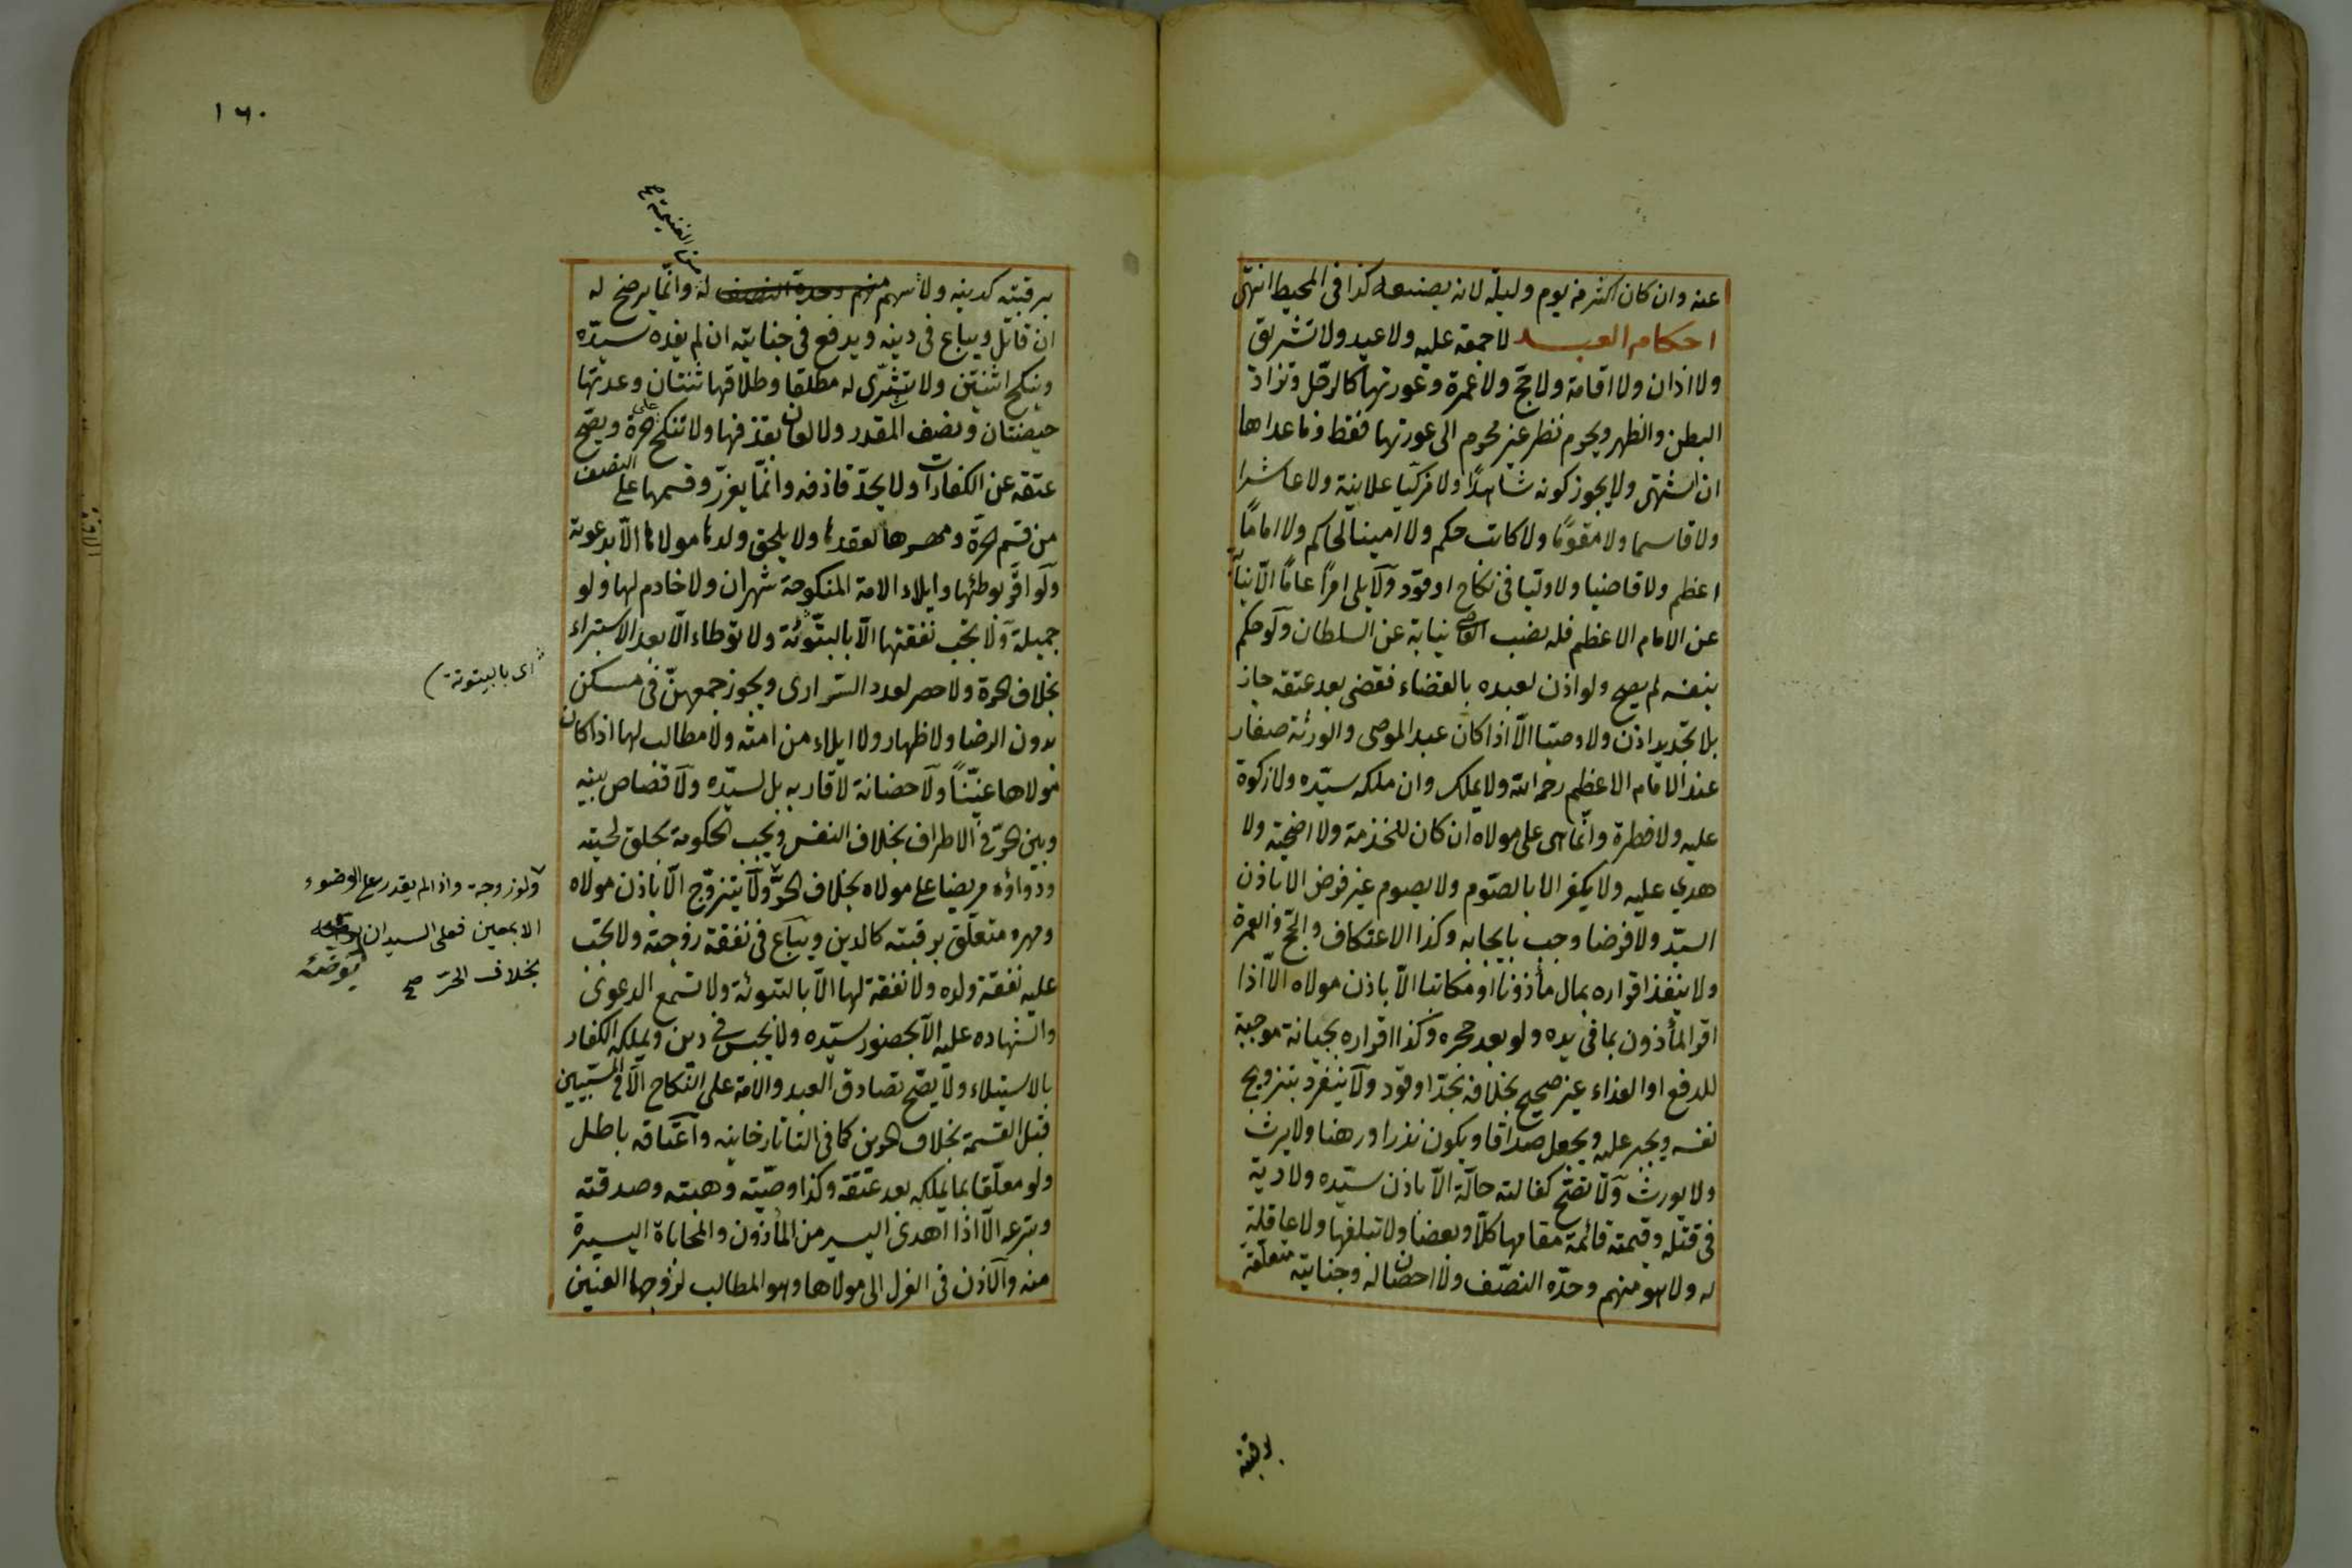 عنه وان كان اكثر من يوم وليلة لانه بصنعه كذا فى المحيط انتهى
احكام العبد لا جمعة عليه ولا عيد ولا تشريق
ولا اذان ولا اقامة ولا حج ولا عمرة وعورتها كالرجل وتزاد
البطن والظهر ويحرم نظر غير محرم الى عورتها فقط وما عداها
ان اشتهى ولا يجوز كونه شاهدا ولا مزكيا علانية ولا عاشرا
ولا قاسما ولا مقوما ولا كاتب حكم ولا امينا لحاكم ولا اماما
اعظم ولا قاضيا ولا وليا فى نكاح او قود ولا يلى امرا عاما الا نيابة
عن الامام الاعظم فله نصب القاضى نيابة عن السلطان ولو حكم
بنفسه لم يصح ولو اذن لعبده بالقضاء فقضى بعد عتقه جاز
بلا تجديد اذن ولا وصيا الا اذا كان عبد الموصى والورثة صغار
عند الامام الاعظم رحمه الله ولا يملك وان ملكه سيده ولا زكوة
عليه ولا فطرة وانما هى على مولاه ان كان للخدمة ولا اضحية ولا
هدي عليه ولا يكفر الا بالصوم ولا يصوم غير فرض الا باذن
السيد ولا فرضا وجب بايجابه وكذا الاعتكاف والحج والعمرة
ولا ينفذ اقراره بمال مأذونا او مكاتبا الا باذن مولاه الا اذا
اقر المأذون بما فى يده ولو بعد حجره وكذا اقراره بجناية موجبة
للدفع او الفداء غير صحيح بخلافه بحد او قود ولا ينفرد بتزويج
نفسه ويجبر عليه ويجعل صداقا ويكون نذرا ورهنا ولا يرث
ولا يورث ولا تصح كفالته حالة الا باذن سيده ولا دية
فى قتله وقيمته قائمة مقامها كلا وبعضا ولا تبلغها ولا عاقلة
له ولا هو منهم وحده النصف ولا احصان له وجنايته متعلقة
برقبته
١٦٠
من الغنيمة صح
برقبته كدينه ولا سهم له وانما يرضخ له
ان قاتل ويباع فى دينه ويدفع فى جنايته ان لم يفده سيده
وينكح اثنتين ولا تسرى له مطلقا وطلاقها ثنتان وعدتها
حيضتان ونصف المقدر ولا لعان بقذفها ولا تنكح على حرة ويصح
عتقه عن الكفارات ولا يحد قاذفه وانما يعزر وقسمها على النصف
من قسم الحرة ومهرها لعقدها ولا يلحق ولدها مولاها الا بدعوته
ولو اقر بوطئها وايلاء الامة المنكوحة شهران ولا خادم لها ولو
جميلة ولا تجب نفقتها الا بالتبوئة ولا توطاء الا بعد الاستبراء
بخلاف الحرة ولا حصر لعدد السرارى ويجوز جمعهن فى مسكن
بدون الرضا ولا ظهار ولا ايلاء من امته ولا مطالب لها اذا كان
مولاها عنينا ولا حضانة لاقاربه بل لسيده ولا قصاص بينه
وبين الحر فى الاطراف بخلاف النفس ويجب الحكومة بحلق لحيته
ودواؤه مريضا على مولاه بخلاف الحر ولا يتزوج الا باذن مولاه
ومهره متعلق برقبته كالدين ويباع فى نفقة زوجته ولا تجب
عليه نفقة ولده ولا نفقة لها الا بالتبوئة ولا تسمع الدعوى
والشهاده عليه الا بحضور سيده ولا يحبس فى دين ويملكه الكفار
بالاستيلاء ولا يصح تصادق العبد والامة على النكاح الا فى المسبيين
قبل القسمة بخلاف الحرين كما فى التاتارخانيه واعتاقه باطل
ولو معلقا بما يملكه بعد عتقه وكذا وصيته وهبته وصدقته
وتبرعه الا اذا اهدى اليسير من المأذون والمحاباة اليسيرة
منه والاذن فى العزل الى مولاها وهو المطالب لزوجها العنين
اى بالبيتوتة
ولو زوجة واذا لم يقدر على الوضوء
الا بمعين فعلى السيد ان يوضئه
بخلاف الحر صح